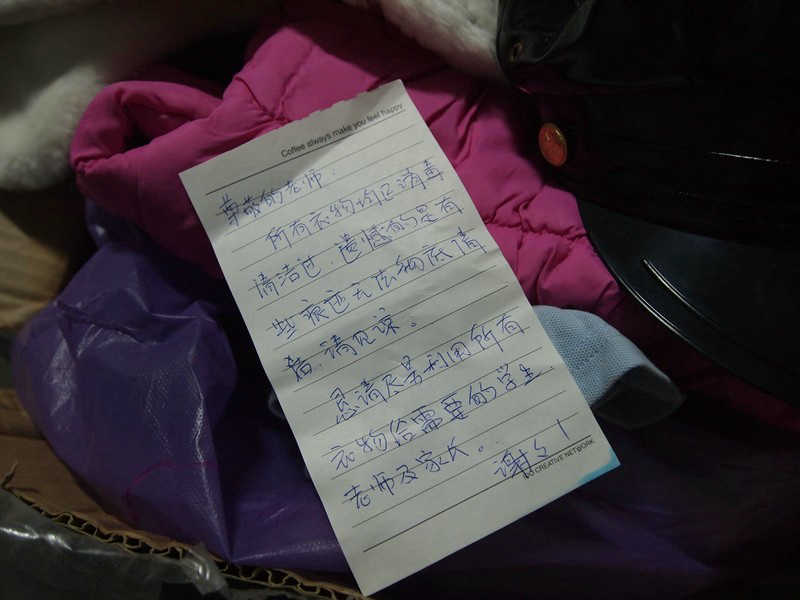 Coffee always make you feel happy
尊敬的老师.
所有衣物均已消毒
清洁过.遗憾的是有
些痕迹无法彻底清
洁.请见谅。
恳请尽量利用所有
衣物给需要的学生.
老师及家长。
谢谢!
CREATIVE NETWORK